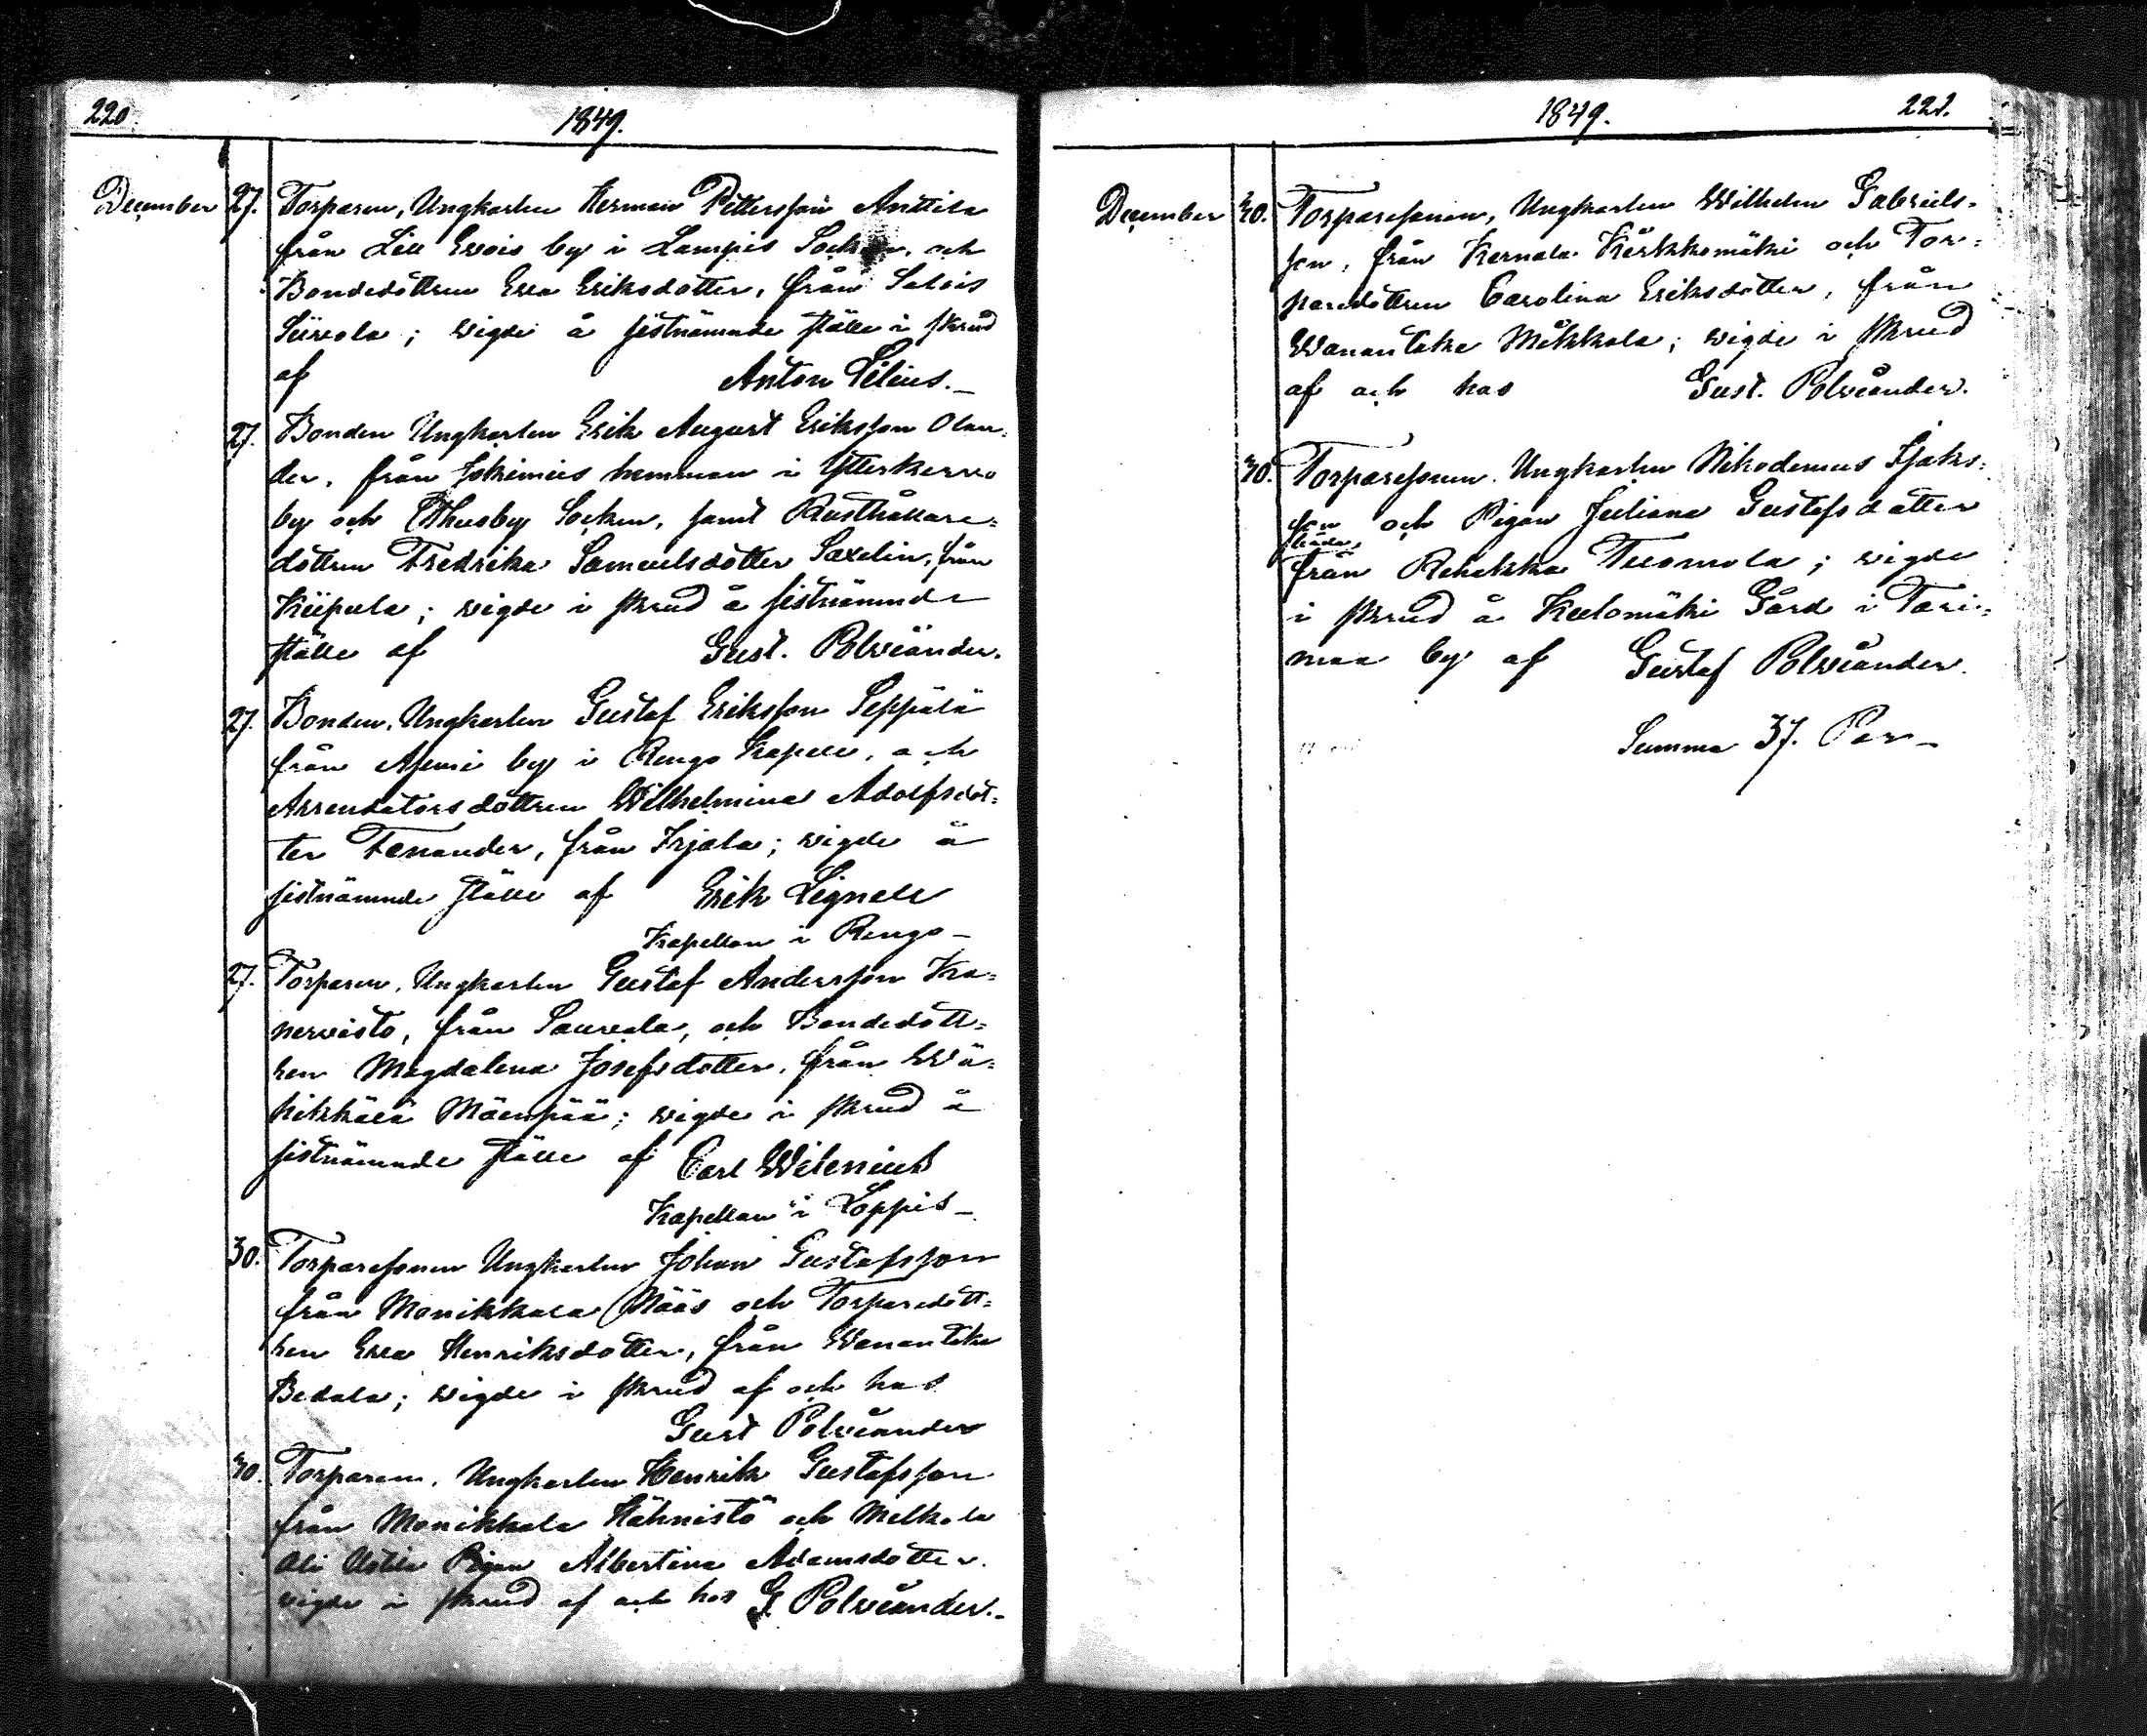 220.
1849.
December 27. Torparen, Ungkarlen Herman Pettersson Anttila
från Lill Ewois by i Lampis Socken, och
Bondedottren Eva Eriksdotter, från Salois
Siirola; wigde å sistnämnde ställe i skrud
af Anton Lilius._
27. Bonden Ungkarlen Erik August Eriksson Olan=
der, från Jokimies hemman i Ytterkerwo
by och Thusby Socken, samt Rusthållare=
dottren Fredrika Samuelsdotter Saxelin, från
Kiipula; wigde i skrud å sistnämnde
ställe af Gust. Polviander.
27. Bonden, Ungkarlen Gustaf Eriksson Seppälä
från by i Rengo Kapell, och
Arrendatorsdottren Wilhelmina Adolfsdot=
ter Fenander, från Irjala; wigde å
sistnämnde ställe af Erik Lignell
Kapellan i Rengo_
27. Torparen, Ungkarlen Gustaf Andersson Ka=
nervisto, från Saurala, och Bondedott=
ren Magdalena Josefsdotter, från Wä=
hikkälä Mäenpää; wigde i skrud å
sistnämnde ställe af Carl Wilenius
Kapellan i Loppis_
30. Torparesonen Ungkarlen Johan Gustafsson
från Monikkala Nääs och Torparedott=
ren Eva Henriksdotter, från Wanantaka
Bedala; wigde i skrud af och hos
Gust Polviander
30. Torparen, Ungkarlen Henrik Gustafsson
från Monikkala Hähnistö och Melkola
Ali Pigan Albertina Adamsdotter.
wigde i skrud af och hos G. Polviander._
1849.
221.
December 30. Torparesonen, Ungkarlen Wilhelm Gabriels=
son, från Kernala Kärkkomäki och Tor=
paredottren Carolina Eriksdotter, från
Wanantaka Mäkkola; wigde i skrud
af och hos Gust. Polviander.
30. Torparesonen, Ungkarlen Nikodemus Isaks=
son och Pigan Juliana Gustafsdotter
båda
från Rehakka Tuomola; wigde
i skrud å Kulomäki Gård i Tari=
maa by af Gustaf Polviander.
Summa 37. Par_